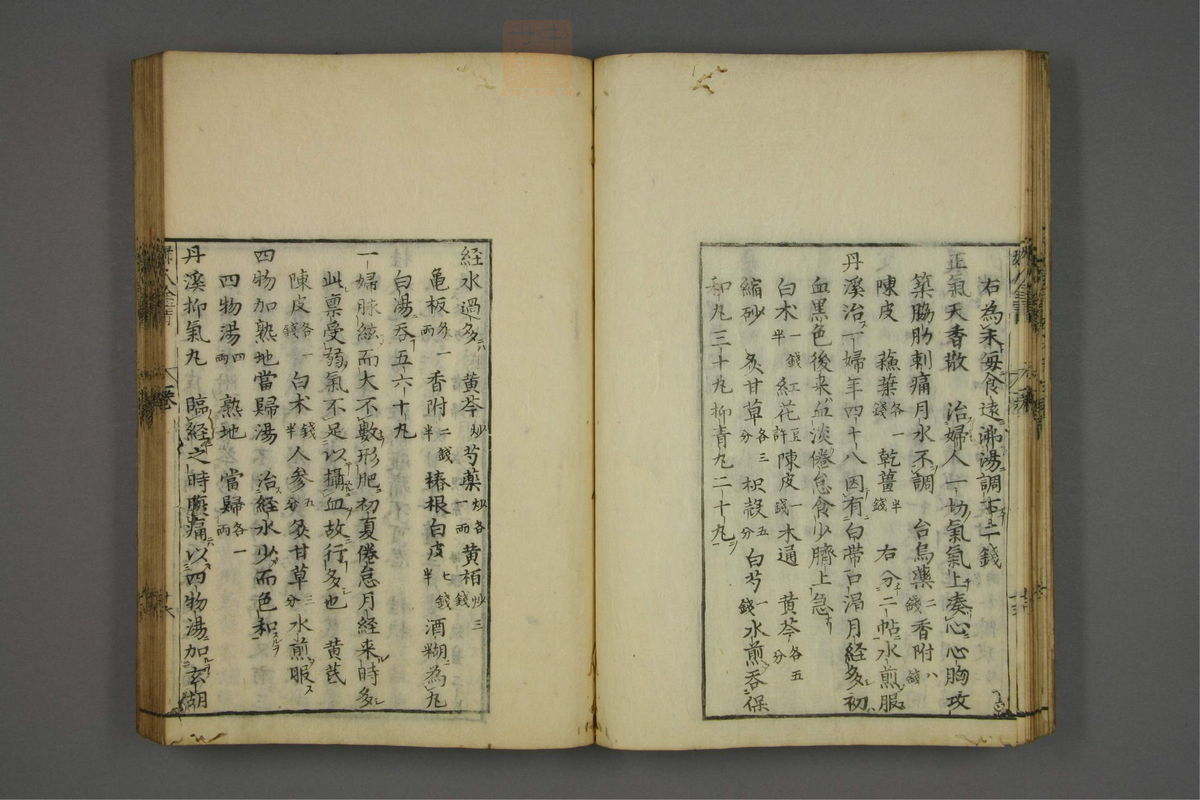 右為末毎食遠沸湯調下二錢
正氣天香散 治婦人一切氣氣上湊心心胸攻
築脇肋刺痛月水不調 台烏藥二錢香附八錢
陳皮 蘓葉各一錢 乾薑半錢 右分二帖水煎服
丹溪治一婦年四十八因有白帯口渇月経多初
血黒色後来血淡倦怠食少臍上急
白朮一錢半 紅花豆許 陳皮一錢 木通 黄芩各五分
縮砂 炙甘草各三分 枳殻五分 白芍一錢 水煎吞保
和丸三十丸抑青丸二十丸
経水過多 黄芩炒芍藥炒各一兩黄栢炒三錢
亀板炙一兩香附二錢半椿根白皮七錢半酒糊為丸
白湯吞五六十丸
一婦脉絃而大不數形肥初夏倦怠月経来時多
此禀受弱氣不足以攝血故行多也 黄芪
陳皮各一錢 白朮錢半人参五分炙甘草三分水煎服
四物加熟地當歸湯 治経水少而色和
四物湯四兩 熟地 當歸各一兩
丹溪抑氣丸 臨経之時腰痛以四物湯加玄胡